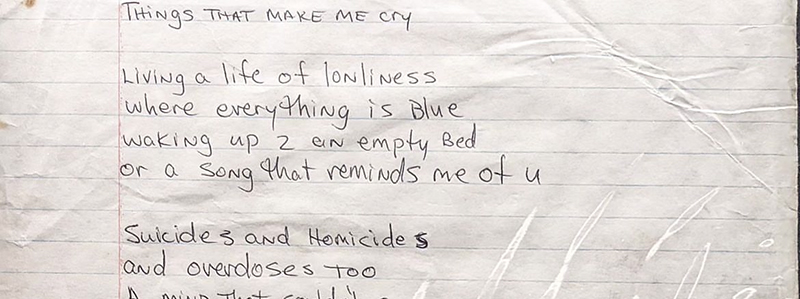 THINGS THAT MAKE ME CRY
Living a life of lonliness
where everything is Blue
waking up 2 an empty Bed
or a song that reminds me of u
Suicides and Homicides
and overdoses Too
A mind that